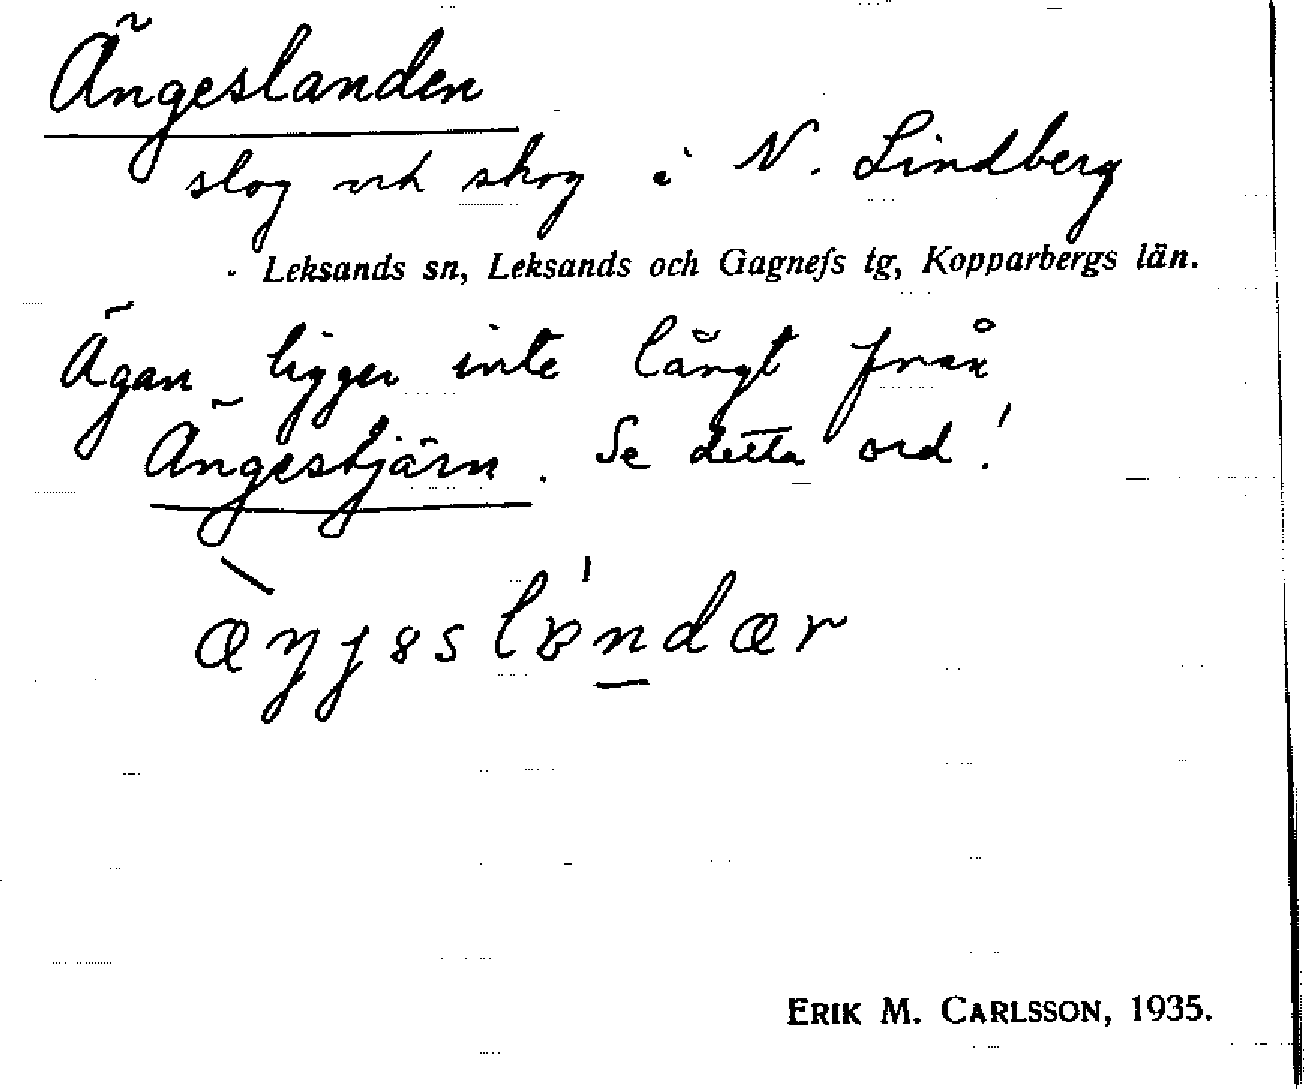 Ängeslanden
slog och skog i N. Lindberg
Leksands sn, Leksands och Gagnefs tg, Kopparbergs län.
Ägan ligger inte långt från
Ängestjärn. Se detta ord!
ERIK M. CARLSSON, 1935.